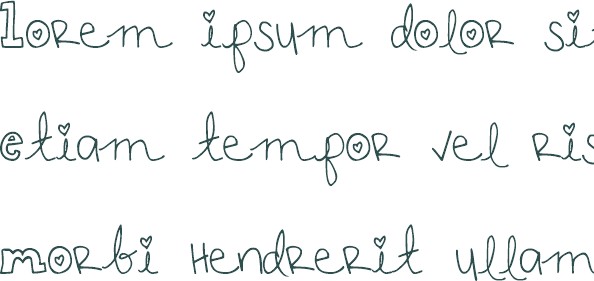 Lorem ipsum dolor si
etiam tempor vel ris
morbi Hendrerit ullam